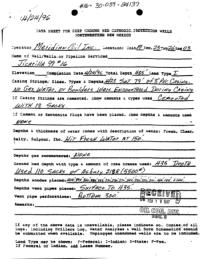 DATA SHEET FOR DEEP GROUND BED CATHODIC PROTECTION WELLS
NORTHWESTERN NEW MEXICO
Operator Meridian Oil Inc. Location:
Name of Well/Wells or Pipeline Serviced
Jicarilla 99 #16
Elevation Completion Date Total Depth 435' Land Type I
Casing Strings, Sizes, Types & Depths Set 99' of 8" PVC Casing.
No Gas, Water, or Boulders Were Encountered During Casing
If Casing Strings are cemented, show amounts & types used Cemented
With 18 Sacks.
If Cement or Bentonite Plugs have been placed, show depths & amounts used
None
Depths & thickness of water zones with description of water: Fresh, Clear,
Salty, Sulphur, Etc. Hit Fresh Water At 150'.
Depths gas encountered: None
Ground bed depth with type & amount of coke breeze used: 435' Depth
Used 110 Sacks of Asbury 218R (5500#)
Depths anodes placed:
Depths vent pipes placed: Surface To 435'.
Vent pipe perforations: Bottom 300'
Remarks:
RECEIVED
OIL CON. DIV.
If any of the above data is unavailable, please indicate so. Copies of all
logs, including Drillers Log, Water Analyses & Well Bore Schematics should
be submitted when available. Unplugged abandoned wells are to be included.
Land Type may be shown: F-Federal; I-Indian; S-State; P-Fee.
If Federal or Indian, add Lease Number.